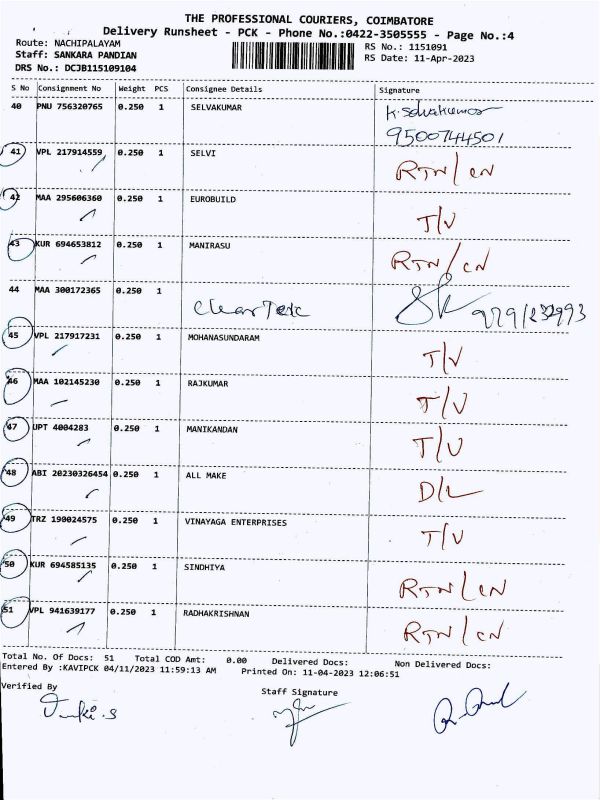 THE PROFESSIONAL COURIERS, COIMBATORE
Delivery Runsheet - PCK - Phone No.:0422-3505555 - Page No.:4
Route: NACHIPALAYAM RS No.: 1151091
Staff: SANKARA PANDIAN RS Date: 11-Apr-2023
DRS No.: DCJB115109104
S No Consignment No Weight PCS Consignee Details Signature
40 PNU 756320765 0.250 1 SELVAKUMAR K.Selvakumar
9500744501
41 VPL 217914559 0.250 1 SELVI RTN/CN
42 MAA 295606360 0.250 1 EUROBUILD T/V
43 KUR 694653812 0.250 1 MANIRASU RTN/CN
44 MAA 300172365 0.250 1
45 VPL 217917231 0.250 1 MOHANASUNDARAM T/V
46 MAA 102145230 0.250 1 RAJKUMAR T/V
47 UPT 4004283 0.250 1 MANIKANDAN T/V
48 ABI 20230326454 0.250 1 ALL MAKE D/L
49 TRZ 190024575 0.250 1 VINAYAGA ENTERPRISES T/V
50 KUR 694585135 0.250 1 SINDHIYA RTN/CN
51 VPL 941639177 0.250 1 RADHAKRISHNAN RTN/CN
Total No. Of Docs: 51 Total COD Amt: 0.00 Delivered Docs: Non Delivered Docs:
Entered By :KAVIPCK 04/11/2023 11:59:13 AM Printed On: 11-04-2023 12:06:51
Verified By Staff Signature